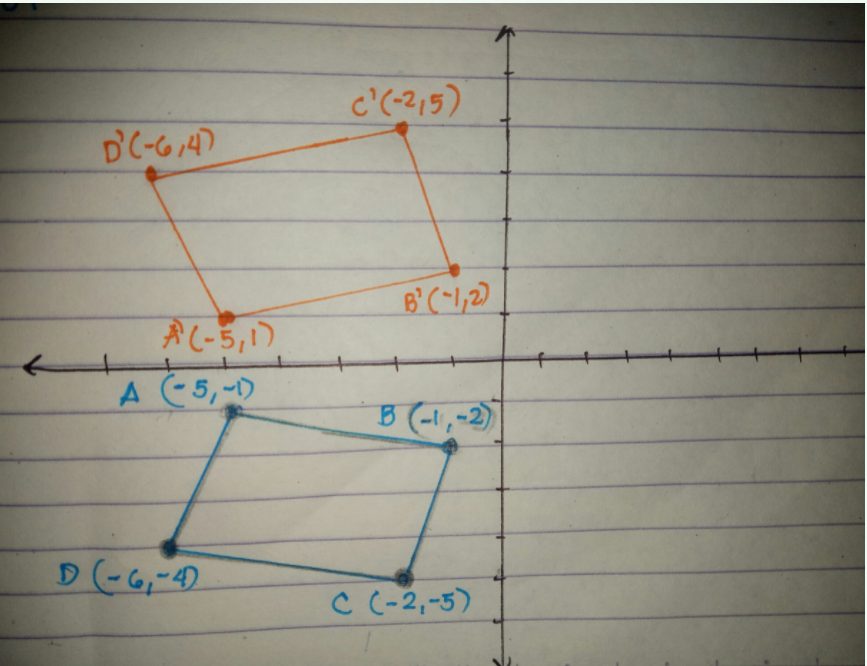 C'(-2,5)
D'(-6,4)
B'(-1,2)
A'(-5,1)
A (-5,-1)
B (-1,-2)
D (-6,-4)
C (-2,-5)